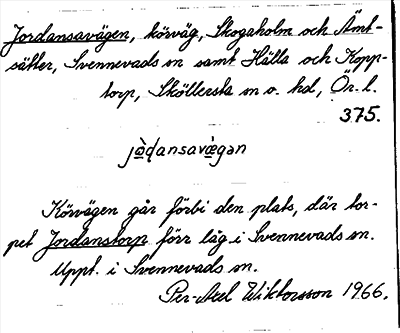 Jordansavägen, körväg, Skogaholm och Åmt-
sätter, Svennevads sn samt Hälla och Kopp-
torp, Sköllersta sn o. hd, Ör. l.
375.
jo̱ḍansavæ̱gən
Körvägen går förbi den plats, där tor-
pet Jordanstorp förr låg i Svennevads sn.
Uppt. i Svennevads sn.
Per-Axel Wiktorsson 1966.